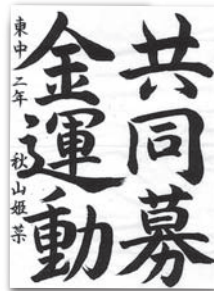 共同募
金運動
東中 二年 秋山姫菜